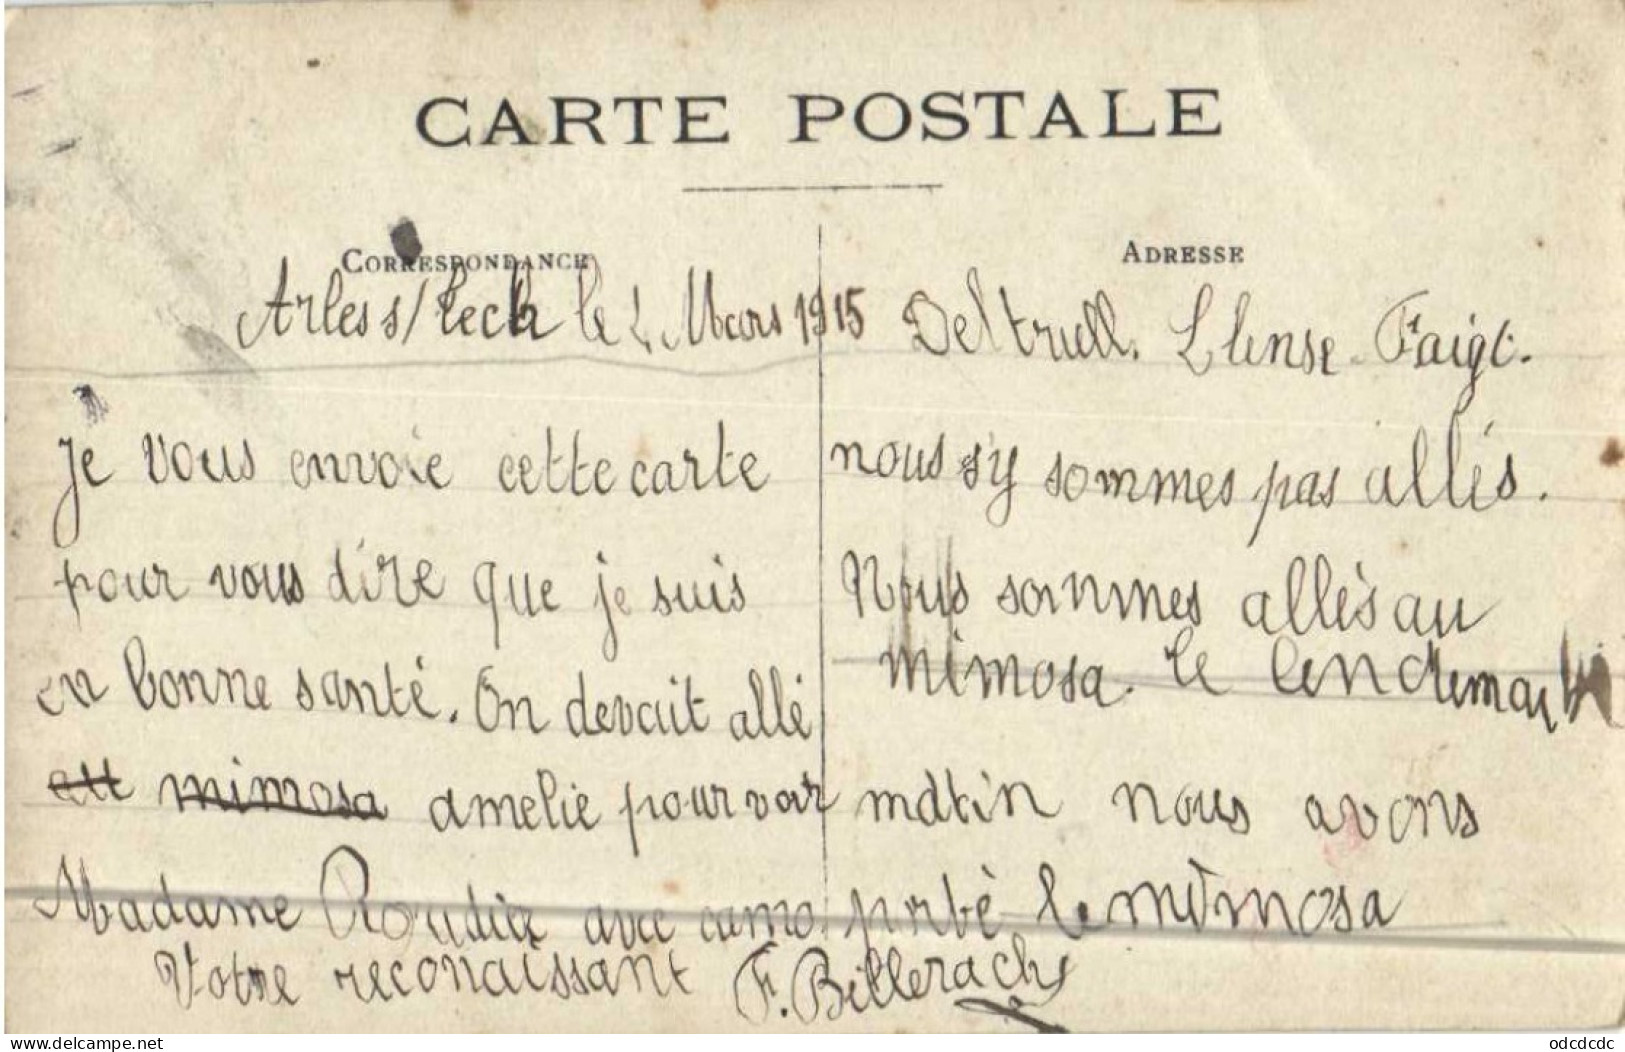 CARTE POSTALE
CORRESPONDANCE
Arles s/Tech le 2 Mars 1915
Je vous envoie cette carte
pour vous dire que je suis
en bonne santé. On devait allé
au mimosa amelie pour voir
Madame avec
ADRESSE
Deltrull. Llense Faigt.
nous s'y sommes pas allés.
Nous sommes allés au
mimosa. le lendemain
matin nous avons
porté le mimosa
Votre reconaissant F. Billerach
delcampe.net
odcdcdc